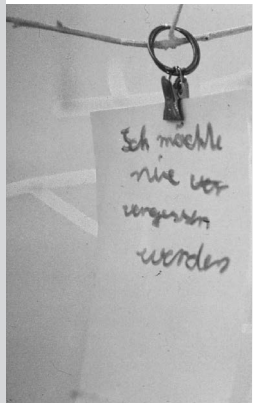 Ich möchte
nie vor
vergessen
werden